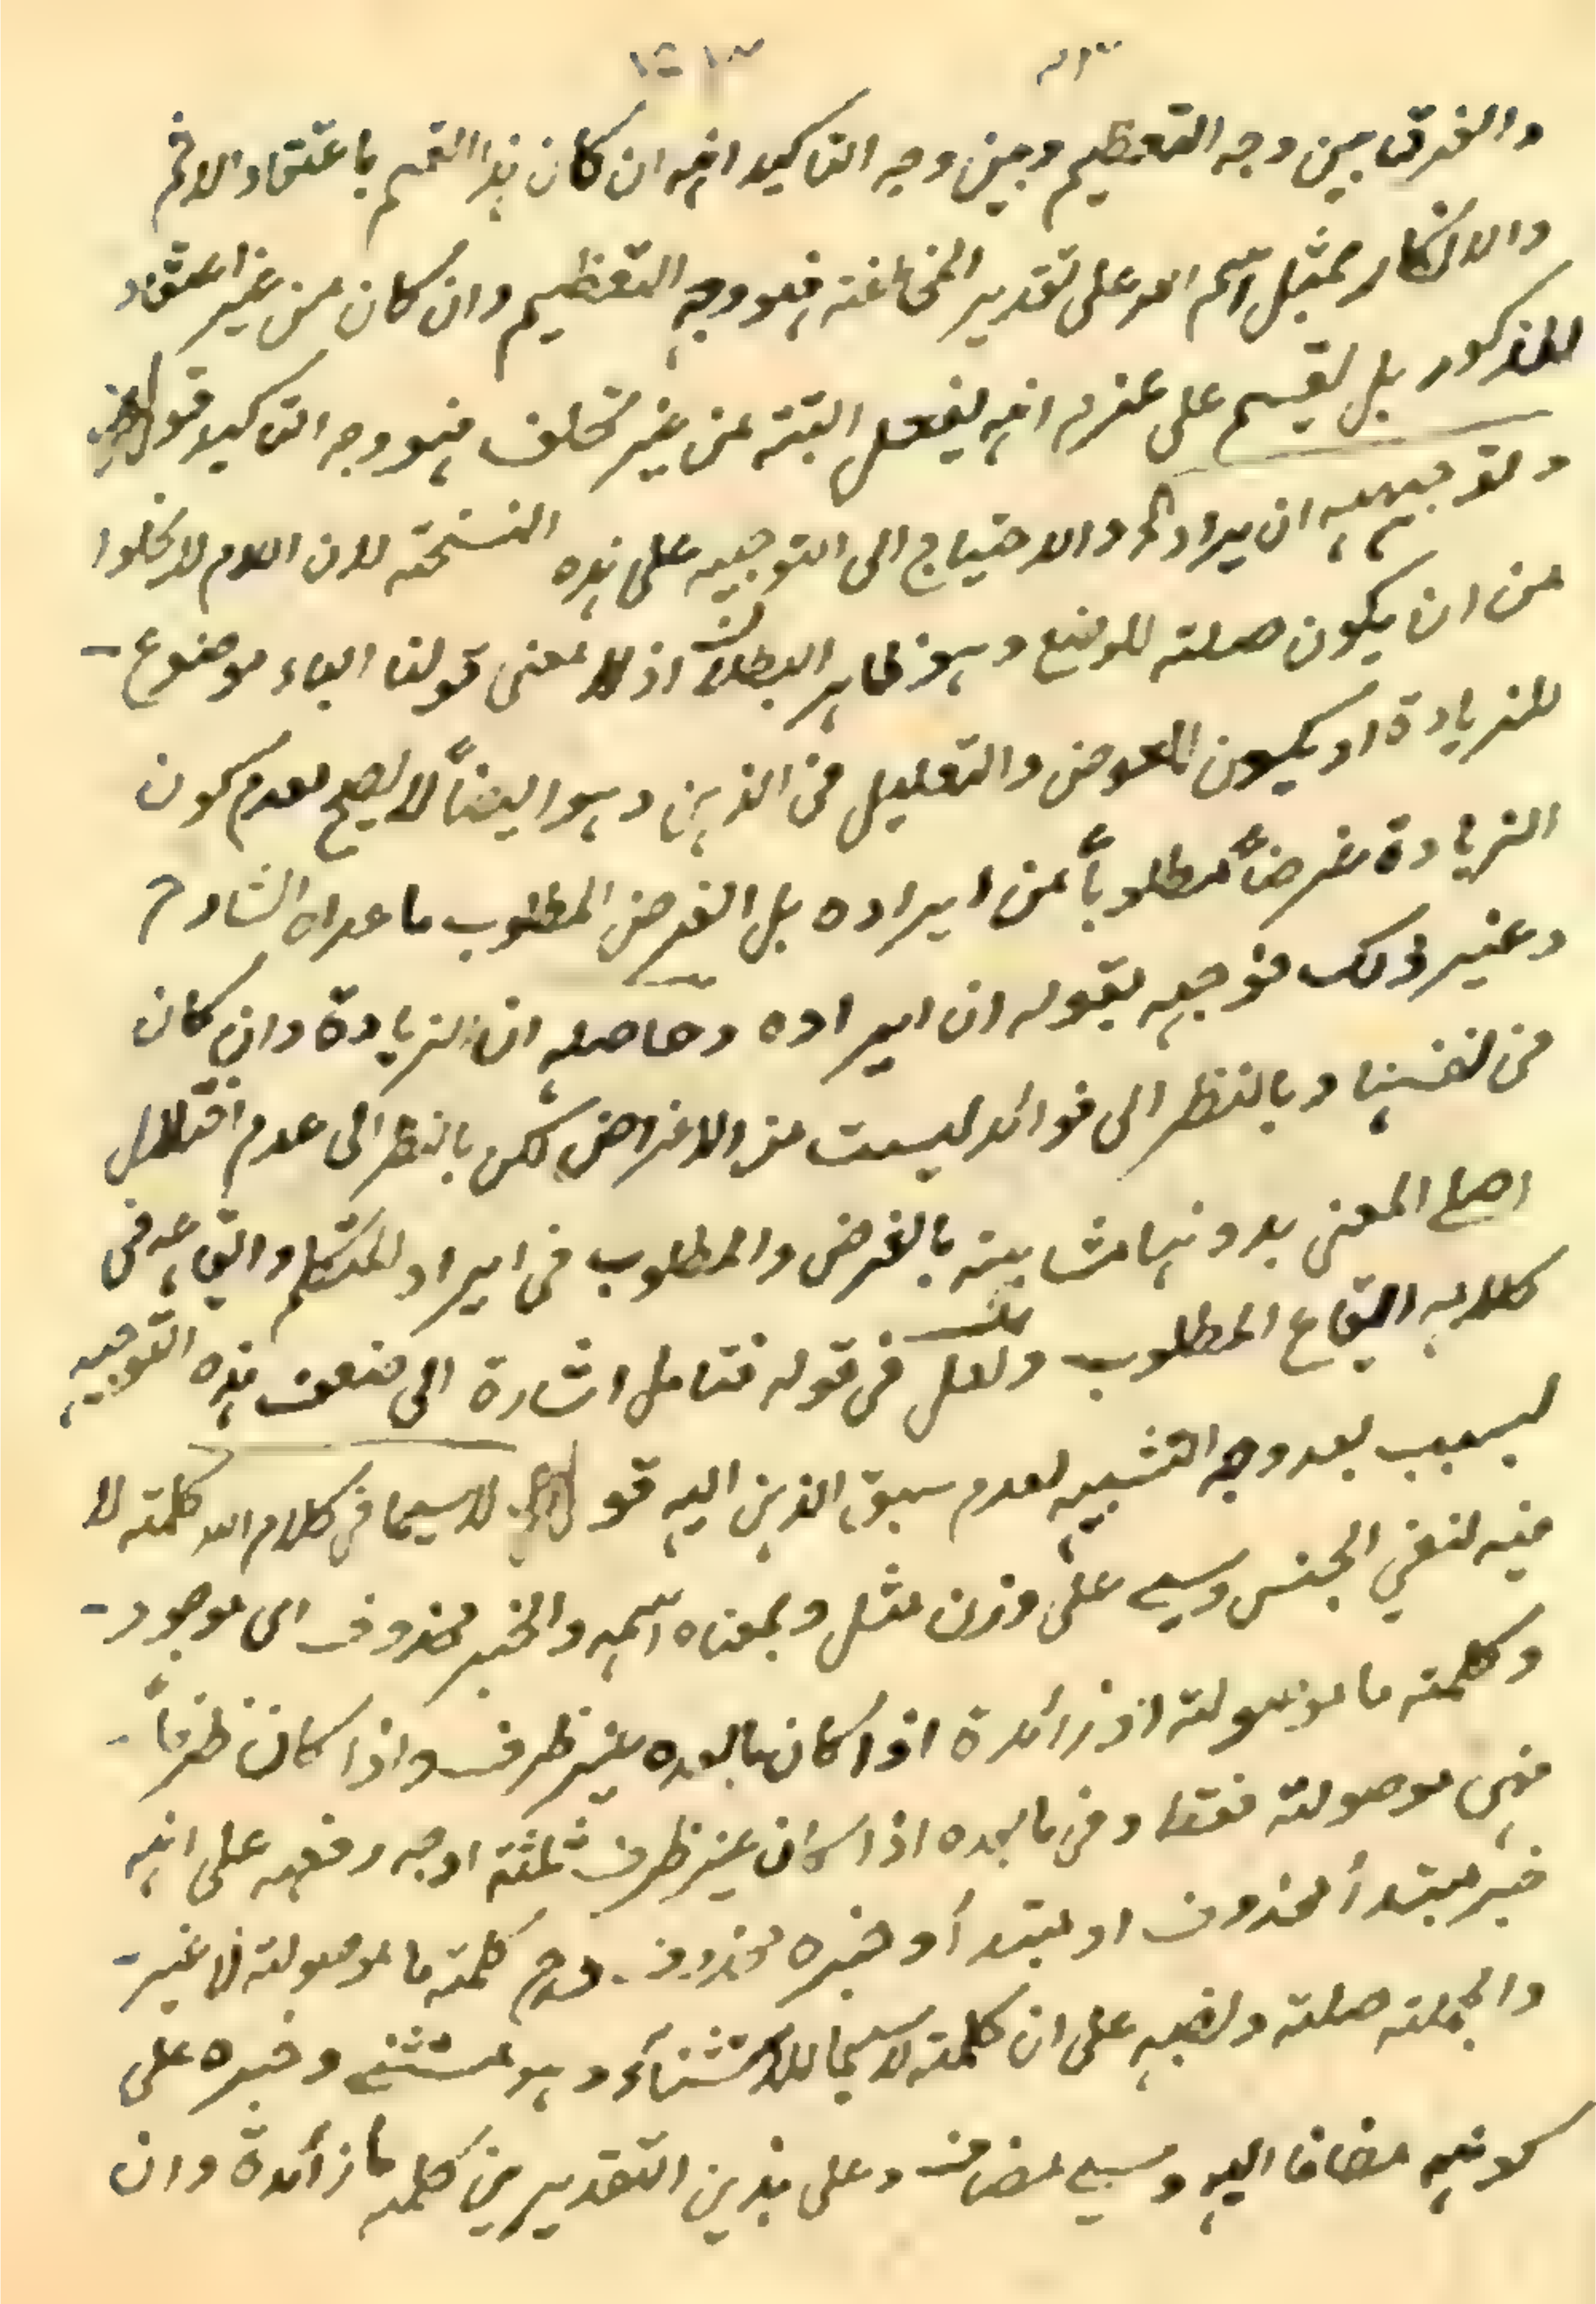 والفرق بين وجه التعظيم وبين وجه التاكيد انه ان كان هذا القسم باعتقاد الاثم
والانكار بمثل اسم الله على تقدير المخالفة فهو وجه التعظيم وان كان من غير اعتقاد
المذكور بل يقسم على عزم انه يفعل البتة من غير تخلف فهو وجه التاكيد قوله
وتوجيهه ان يراد والاحتياج الى التوجيه على هذه النسخة لان اللام لا يخلوا
من ان يكون صلته للوضع وهو ظاهر البطلان اذ لا معنى قولنا الباء موضوع
للزيادة او يكون للغرض والتعليل في الذهن وهو ايضاً لا يصح لعدم كون
الزيادة غرضاً مطلوباً من ايراده بل الغرض المطلوب ما عداه الشارح
وغير ذلك فوجهه بقوله ان ايراده وحاصله ان الزيادة وان كان
في نفسها وبالنظر الى فوائد ليست من الاغراض لكن بالنظر الى عدم اختلال
اصل المعنى بدونها مشابهة بالغرض والمطلوب في ايراد المتكلم وايقاعه في
كلامه ايقاع المطلوب ولعل في قوله فتامل اشارة الى ضعف هذه التوجيه
لسبب بعد وجه التشبيه لعدم سبق الذهن اليه قوله لاسيما في كلام الله كلمة لا
فيه لنفي الجنس وسي على وزن مثل وبمعناه اسمه والخبر محذوف اى موجود
وكلمة ما موصولة او زائدة اذا كان ما بعده غير ظرف واذا كان ظرفاً
فهى موصولة فقط وفى ما بعده اذا كان غير ظرف ثلثة اوجه رفعه على انه
خبر مبتدأ محذوف او مبتدأ وخبره محذوف وح كلمة ما موصولة لا غير
والجملة صلته ونصبه على ان كلمة لاسيما للاستثناء وهو مستثنى وجره على
كونه مضافا اليه وسي مضاف وعلى هذين التقديرين كلمة ما زائدة وان